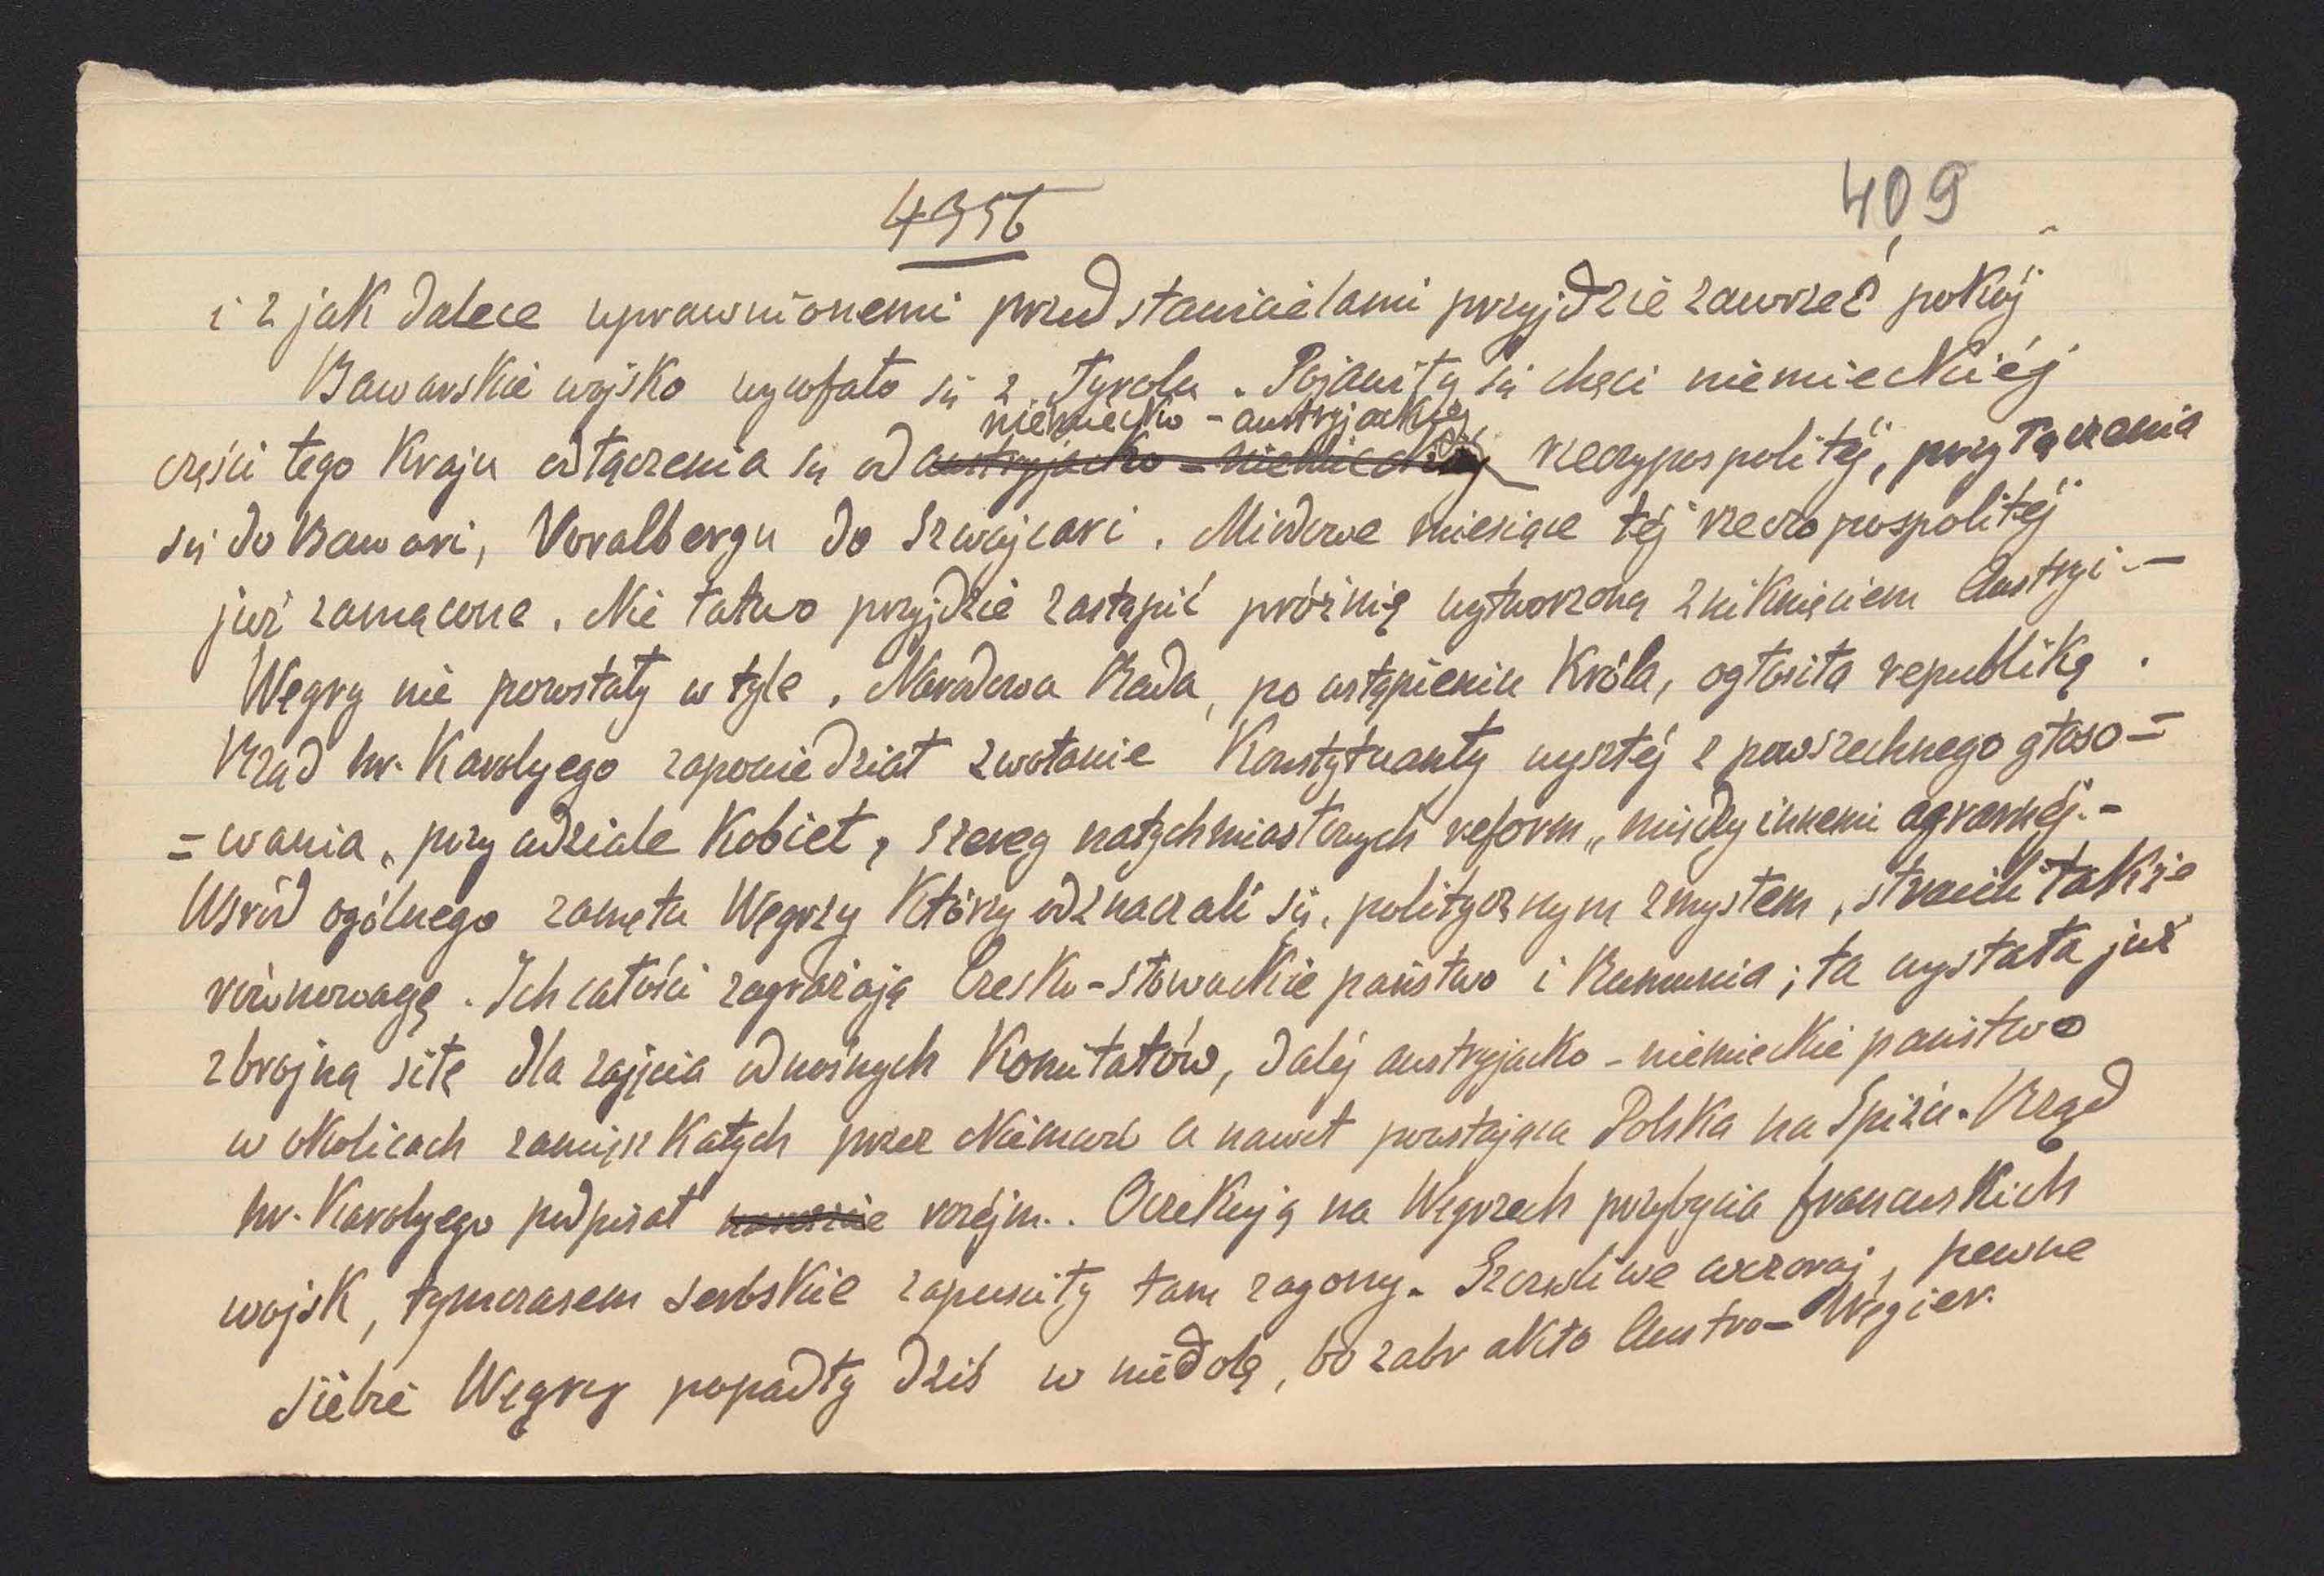 4956
409
i z jak dalece uprawnionemi przedstawicielami przyjdzie zawrzeć pokój
Bawarskie wojsko wycofało się z Tyrolu. Pojawiły się chęci niemieckiéj
niemiecko-austryjackiéj
części tego Kraju odłączenia się od austryjacko-niemieckiéj rzeczypospolitéj, przyłączenia
się do Bawari, Voralbergu do Szwajcari. Miodowe miesiące téj rzeczopospolitéj
już zamącone. Nie łatwo przyjdzie zastąpić próżnię wytworzoną zniknięciem Austryi.-
Węgry nie powstały w tyle. Narodowa Rada, po ustąpieniu Króla, ogłosiła republikę.
Rząd hr. Karolyego zapowiedział zwołanie Konstytuanty wyszłéj z powszechnego głoso=
=wania, przy udziale Kobiet, szereg natychmiastowych reform, między innemi agrarnéj.-
Wsród ogólnego zamętu Węgrzy Którzy odznaczali się, politycznym zmysłem, stracili także
równowagę. Ich całości zagrażają Czesko-Słowackie państwo i Rumunia; ta wysłała już
zbrojną siłę dla zajęcia odnośnych Komitatów, daléj austryjacko-niemieckie państwo
w okolicach zamięszkałych przez Niemców a nawet powstająca Polska na Spiżu. Rząd
hr. Karolyego podpisał rozéjm.. Oczekują na Węgrzech przybycia francuskich
wojsk, tymczasem serbskie zapuściły tam zagony. Szczęśliwe wczoraj, pewne
siebie Węgry popadły dziś w niedolę, bo zabrakło Austro-Węgier.